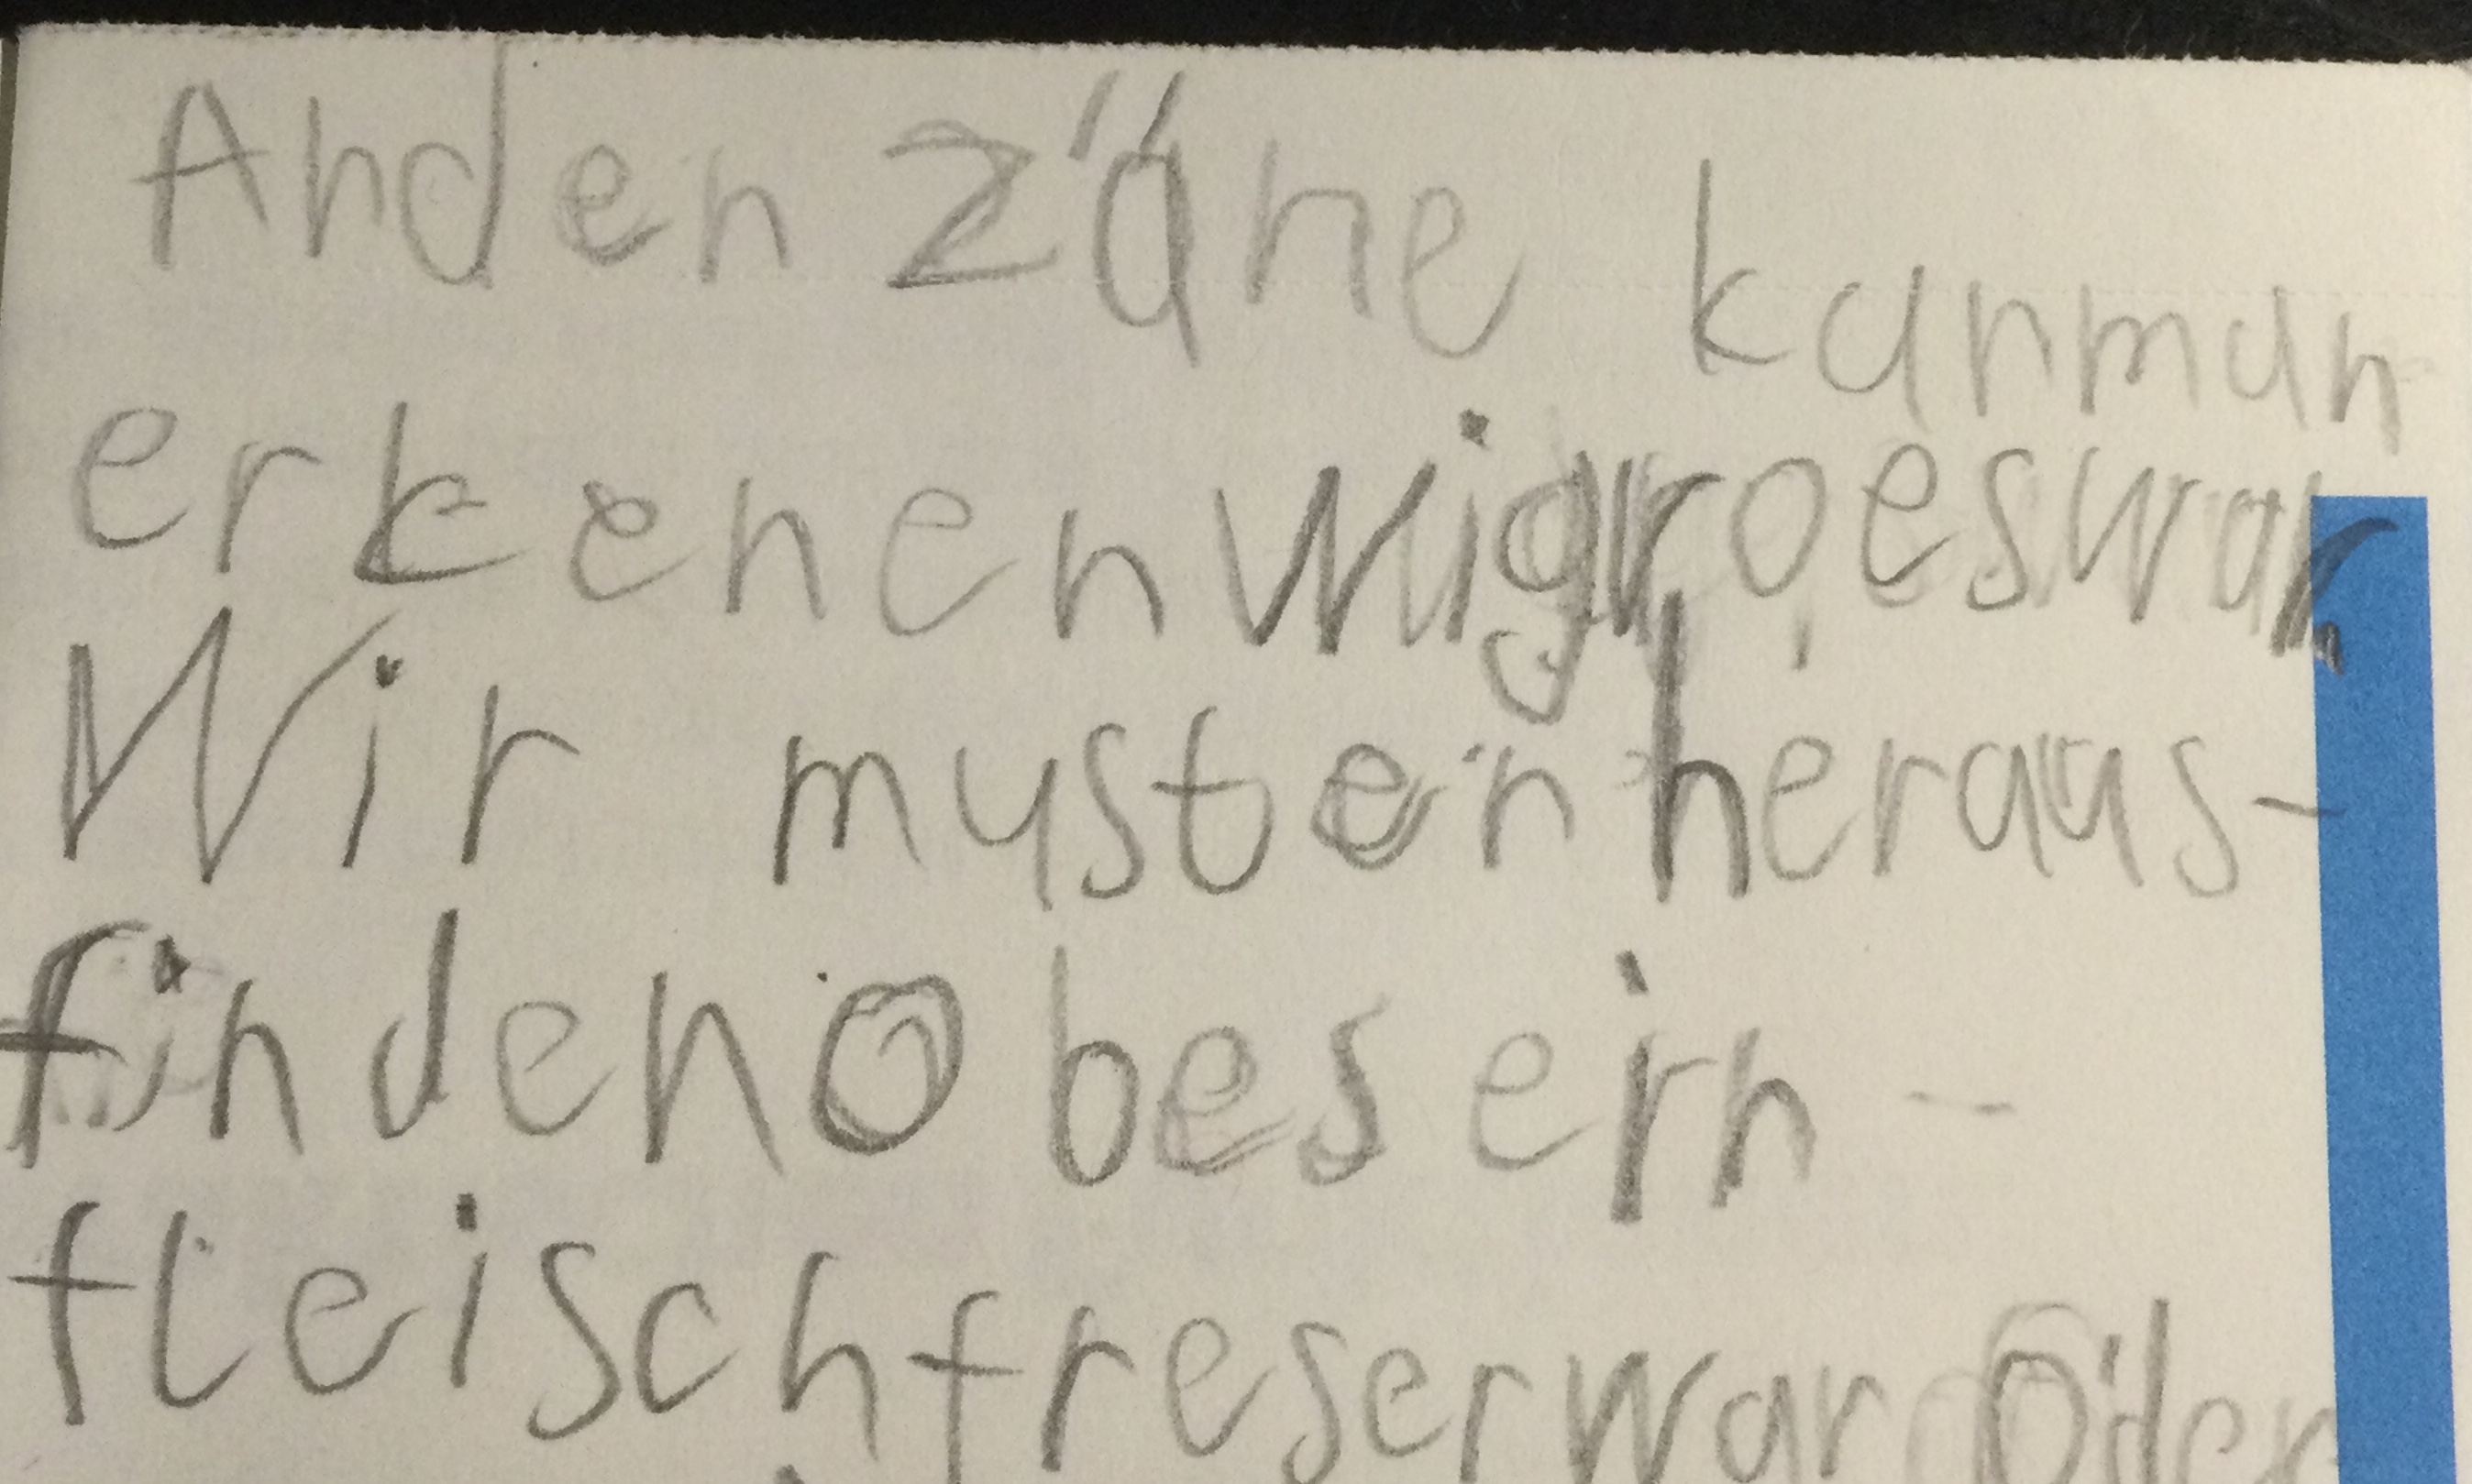 An den Zäne kan man
erkenen wi gro es war.
Wir musten heraus-
finden ob es ein -
fleischfreser war Oder